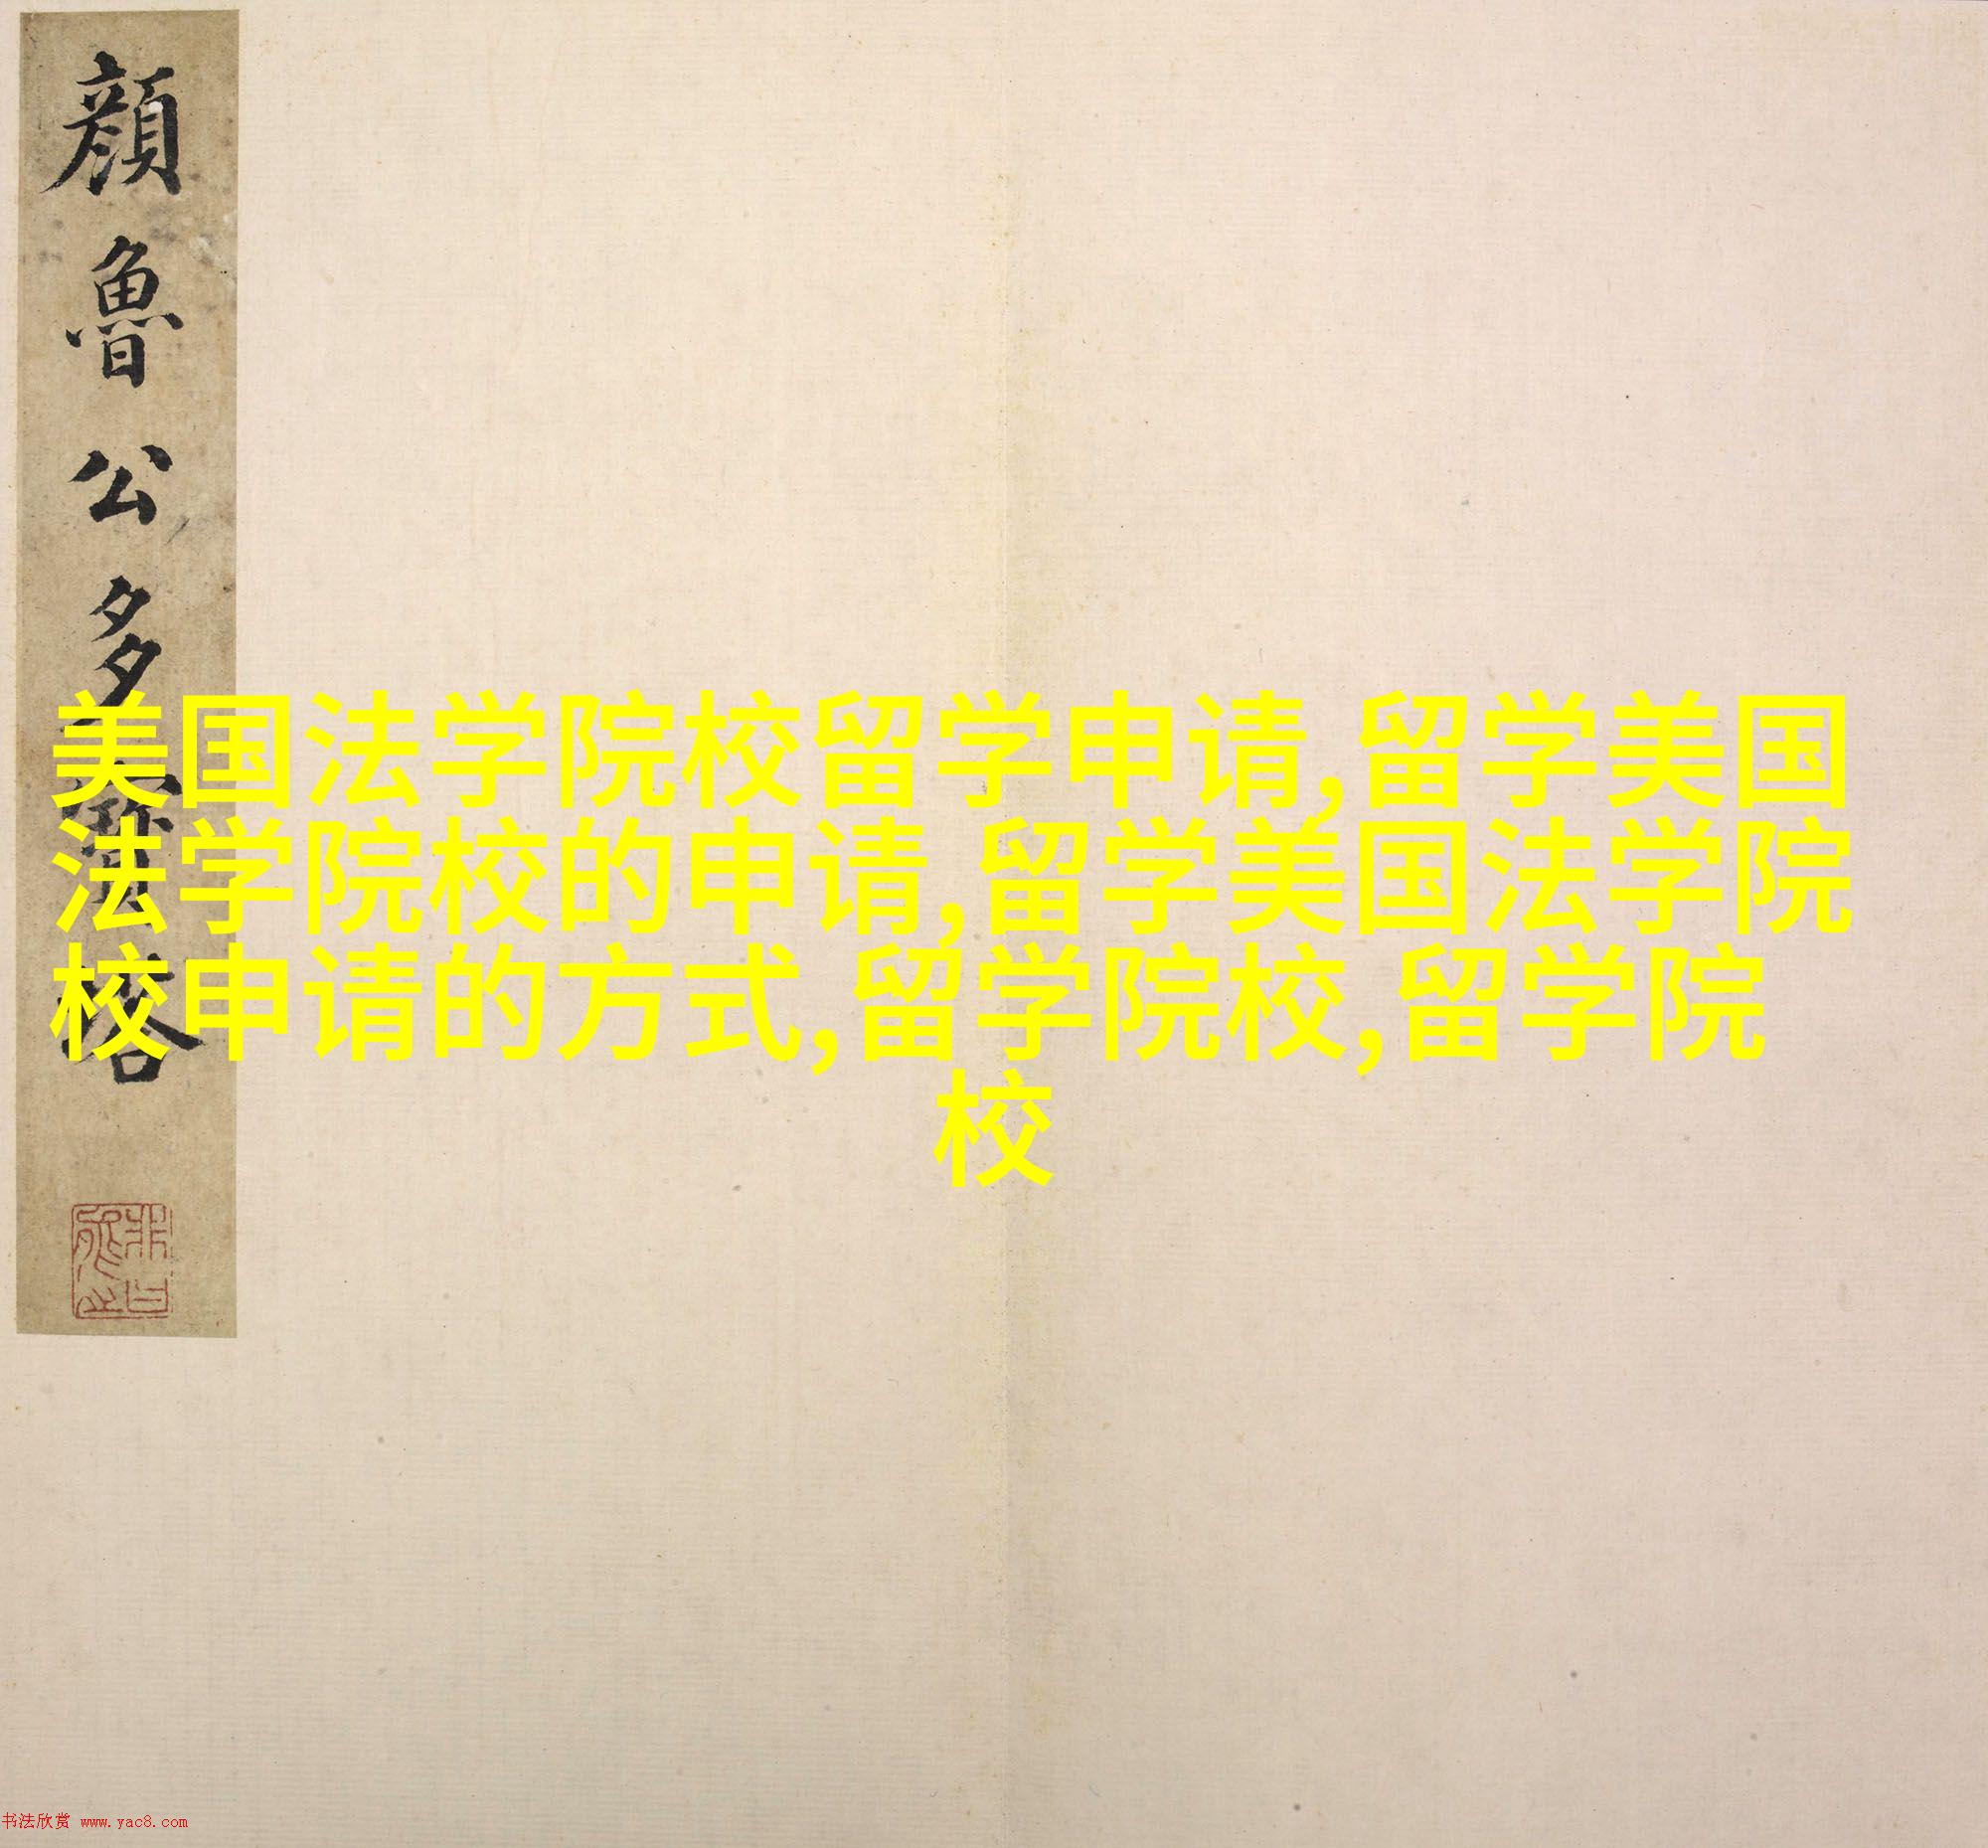 顔魯公多寶塔
美国法学院校留学申请,留学美国
法学院校的申请,留学美国法学院
校申请的方式,留学院校,留学院
校
书法欣赏 www.yac8.com